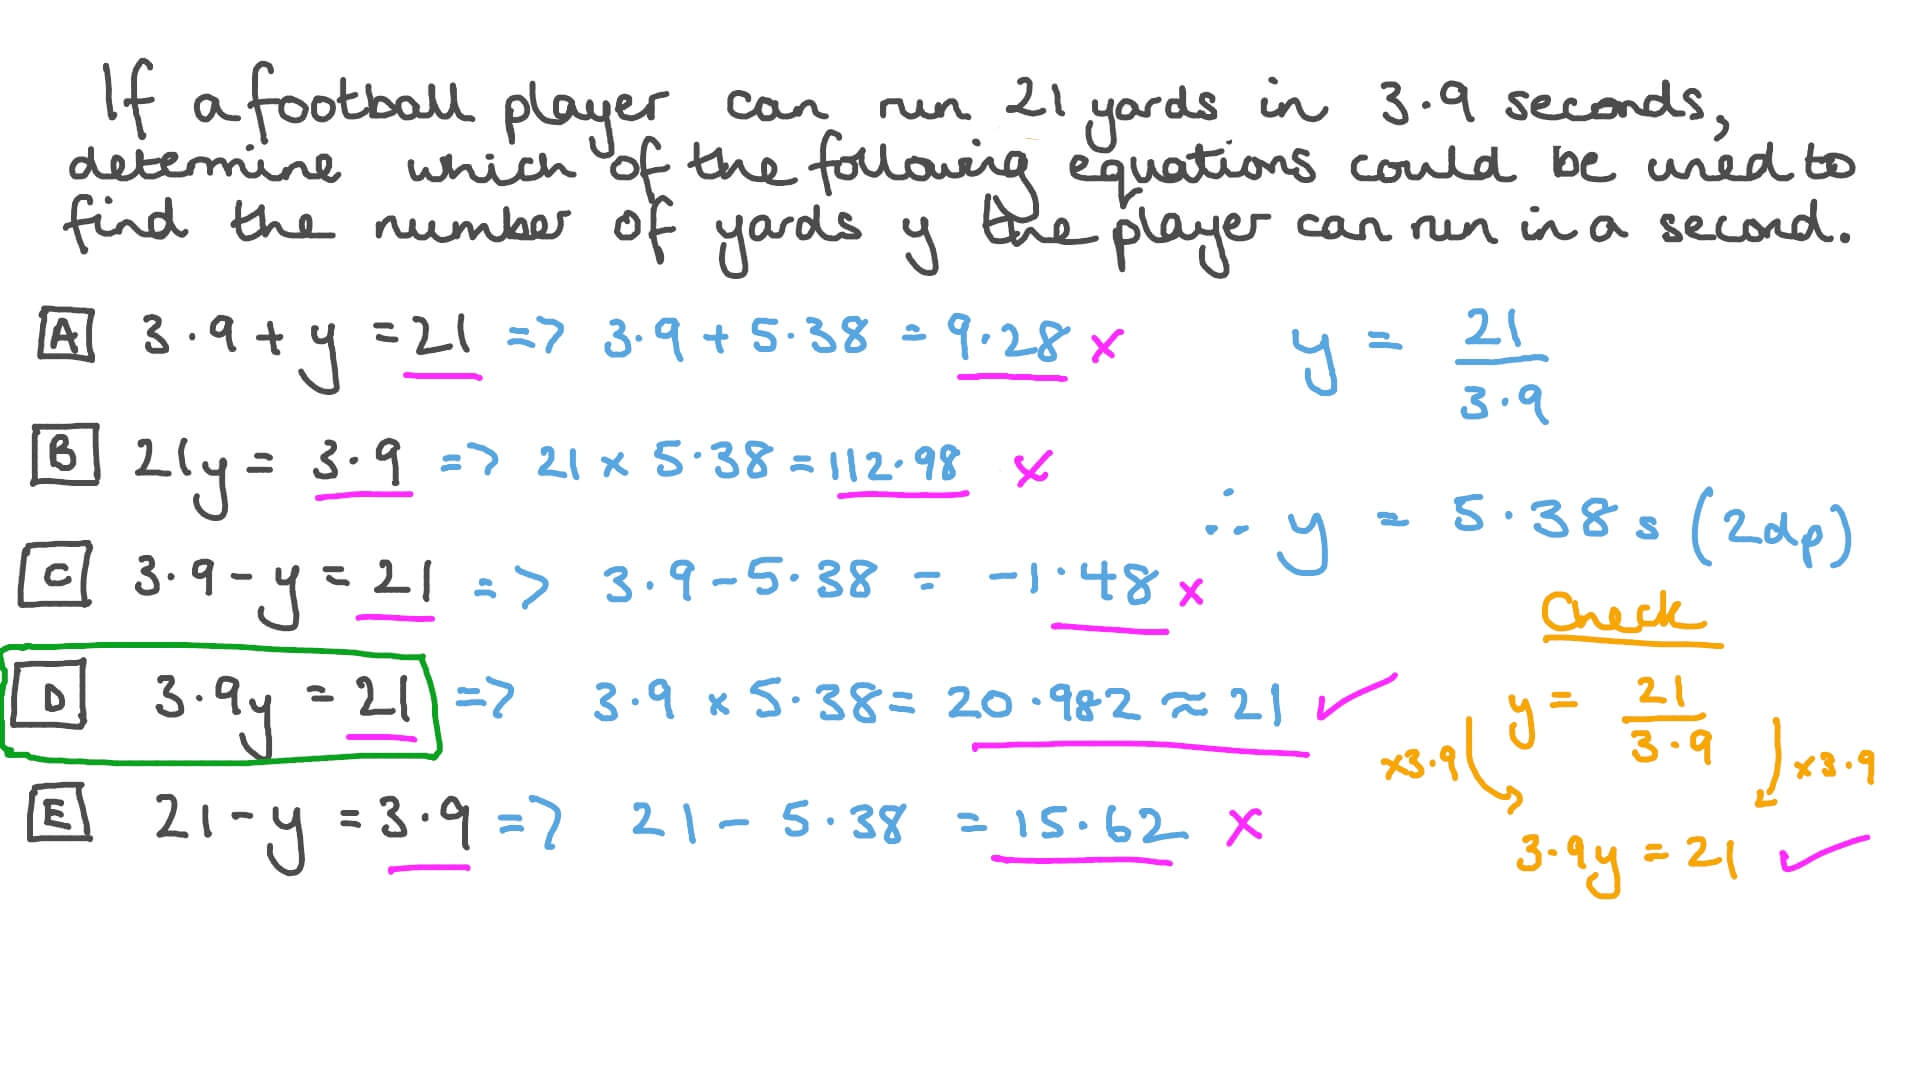 If a football player can run 21 yards in 3.9 seconds,
determine which of the following equations could be used to
find the number of yards y the player can run in a second.
A 3.9 + y = 21 => 3.9 + 5.38 = 9.28 ×
y = 21/3.9
B 21y = 3.9 => 21 × 5.38 = 112.98 ×
∴ y = 5.38 s (2dp)
C 3.9 - y = 21 => 3.9 - 5.38 = -1.48 ×
Check
D 3.9y = 21 => 3.9 × 5.38 = 20.982 ≈ 21 ✓
y = 21/3.9
×3.9 ×3.9
E 21 - y = 3.9 => 21 - 5.38 = 15.62 ×
3.9y = 21 ✓